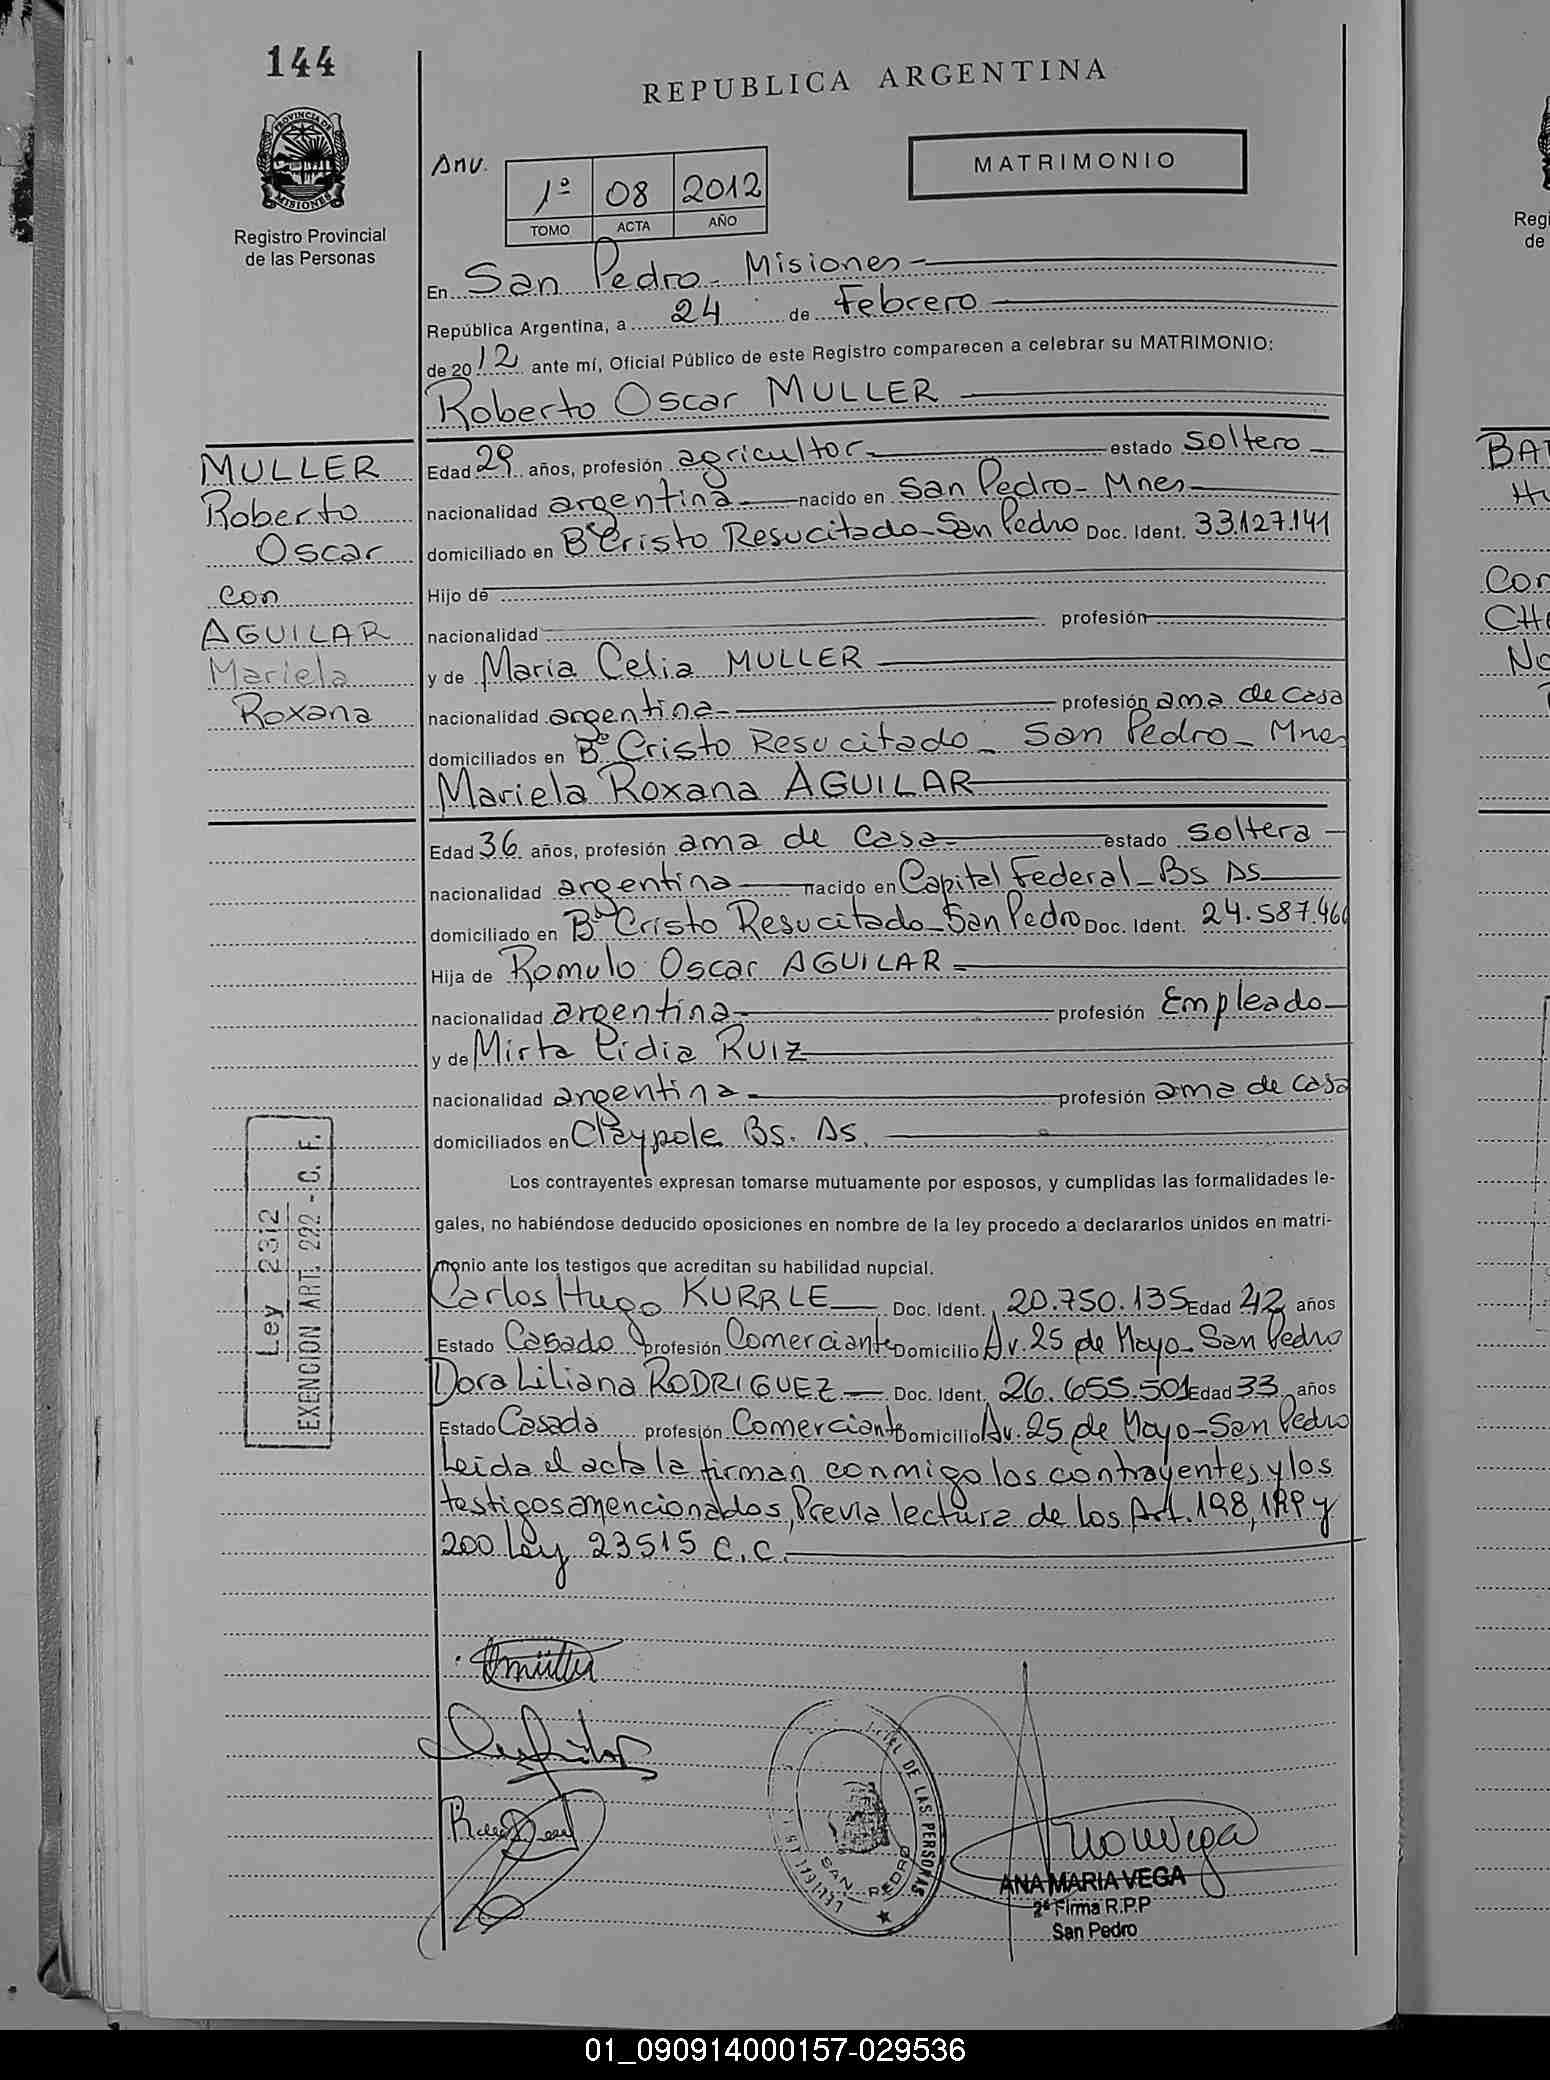 144
REPUBLICA ARGENTINA
PROVINCIA DE
MISIONES
Registro Provincial
de las Personas
Anv.
1º 08 2012
TOMO ACTA AÑO
MATRIMONIO
En San Pedro - Misiones
República Argentina, a 24 de Febrero
de 2012 ante mí, Oficial Público de este Registro comparecen a celebrar su MATRIMONIO:
Roberto Oscar MULLER
MULLER
Roberto
Oscar
con
AGUILAR
Mariela
Roxana
Edad 29 años, profesión agricultor estado soltero
nacionalidad argentina nacido en San Pedro - Mnes
domiciliado en Bº Cristo Resucitado - San Pedro Doc. Ident. 33.127.141
Hijo de
nacionalidad profesión
y de Maria Celia MULLER
nacionalidad argentina profesión ama de casa
domiciliados en Bº Cristo Resucitado - San Pedro - Mnes
Mariela Roxana AGUILAR
Edad 36 años, profesión ama de casa estado soltera
nacionalidad argentina nacido en Capital Federal - Bs As
domiciliado en Bº Cristo Resucitado - San Pedro Doc. Ident. 24.587.466
Hija de Romulo Oscar AGUILAR
nacionalidad argentina profesión Empleado
y de Mirta Lidia RUIZ
nacionalidad argentina profesión ama de casa
domiciliados en Claypole Bs. As.
Los contrayentes expresan tomarse mutuamente por esposos, y cumplidas las formalidades le-
gales, no habiéndose deducido oposiciones en nombre de la ley procedo a declararlos unidos en matri-
monio ante los testigos que acreditan su habilidad nupcial.
Carlos Hugo KURRLE Doc. Ident. 20.750.135 Edad 42 años
Estado Casado profesión Comerciante Domicilio Av. 25 de Mayo - San Pedro
Dora Liliana RODRIGUEZ Doc. Ident. 26.655.501 Edad 33 años
Estado Casada profesión Comerciante Domicilio Av. 25 de Mayo - San Pedro
Leida el acta la firman conmigo los contrayentes y los
testigos mencionados, Previa lectura de los Art. 198, 199 y
200 Ley 23515 C.C.
Ley 2312
EXENCION ART. 222 - C. F.
DE LAS PERSONAS
SAN PEDRO
ANA MARIA VEGA
2ª Firma R.P.P
San Pedro
Regi
de
BAT
Hu
Con
CHE
No
01_090914000157-029536